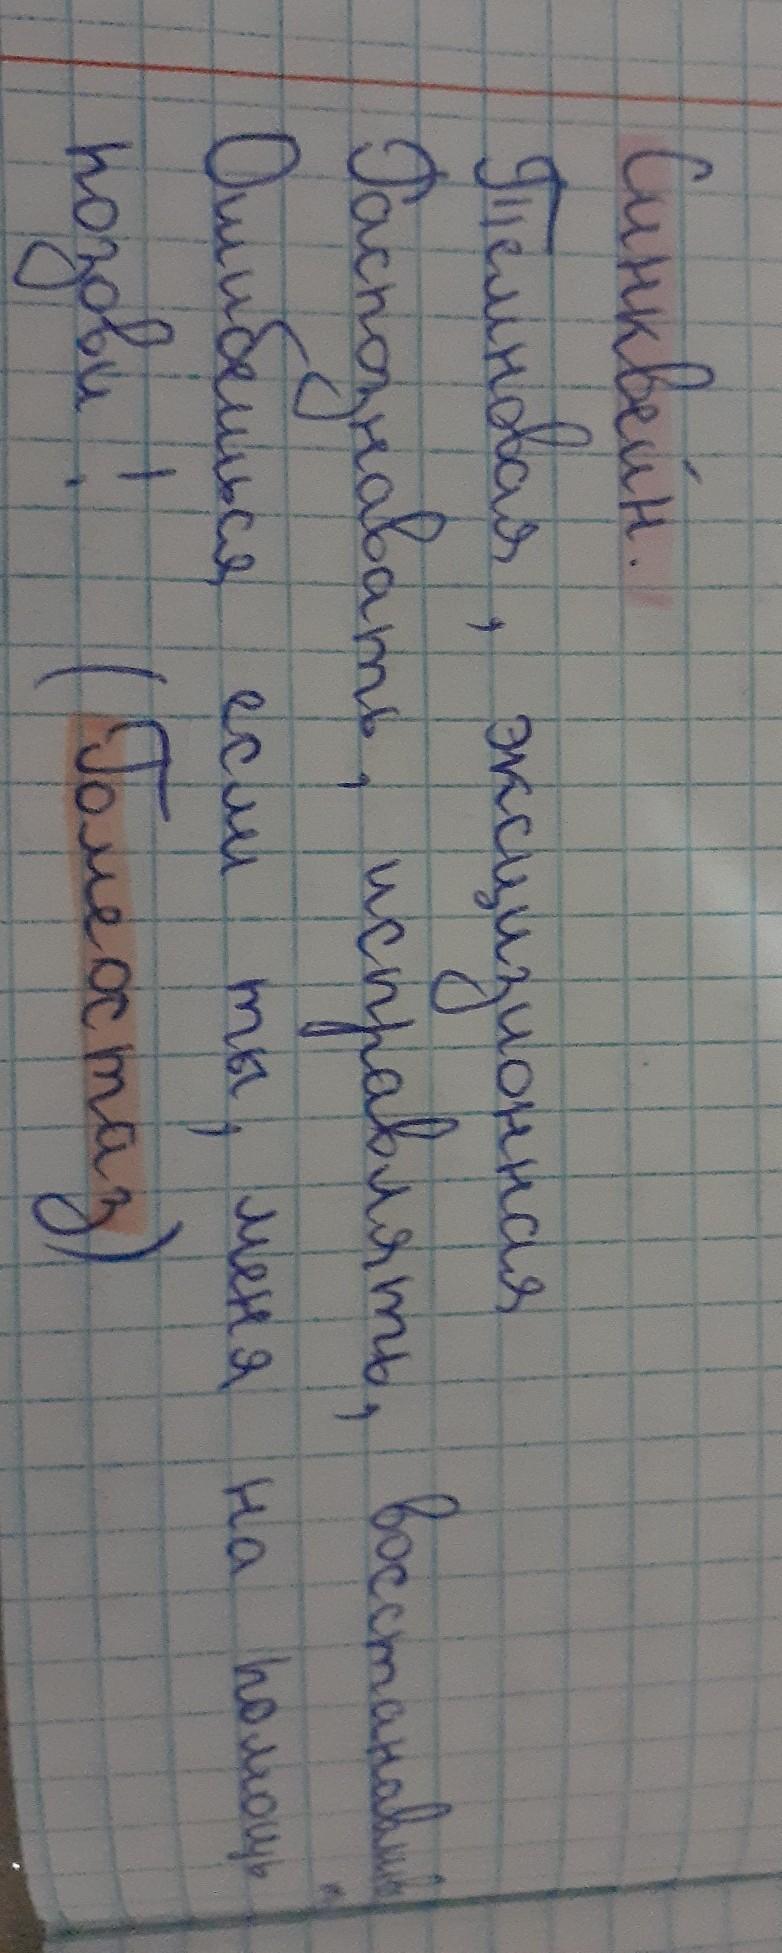 Синквейн.
Темновая, эксцизионная
Распознавать, исправлять,
Ошибешься если ты, меня на помощь
позови! (Гомеостаз)